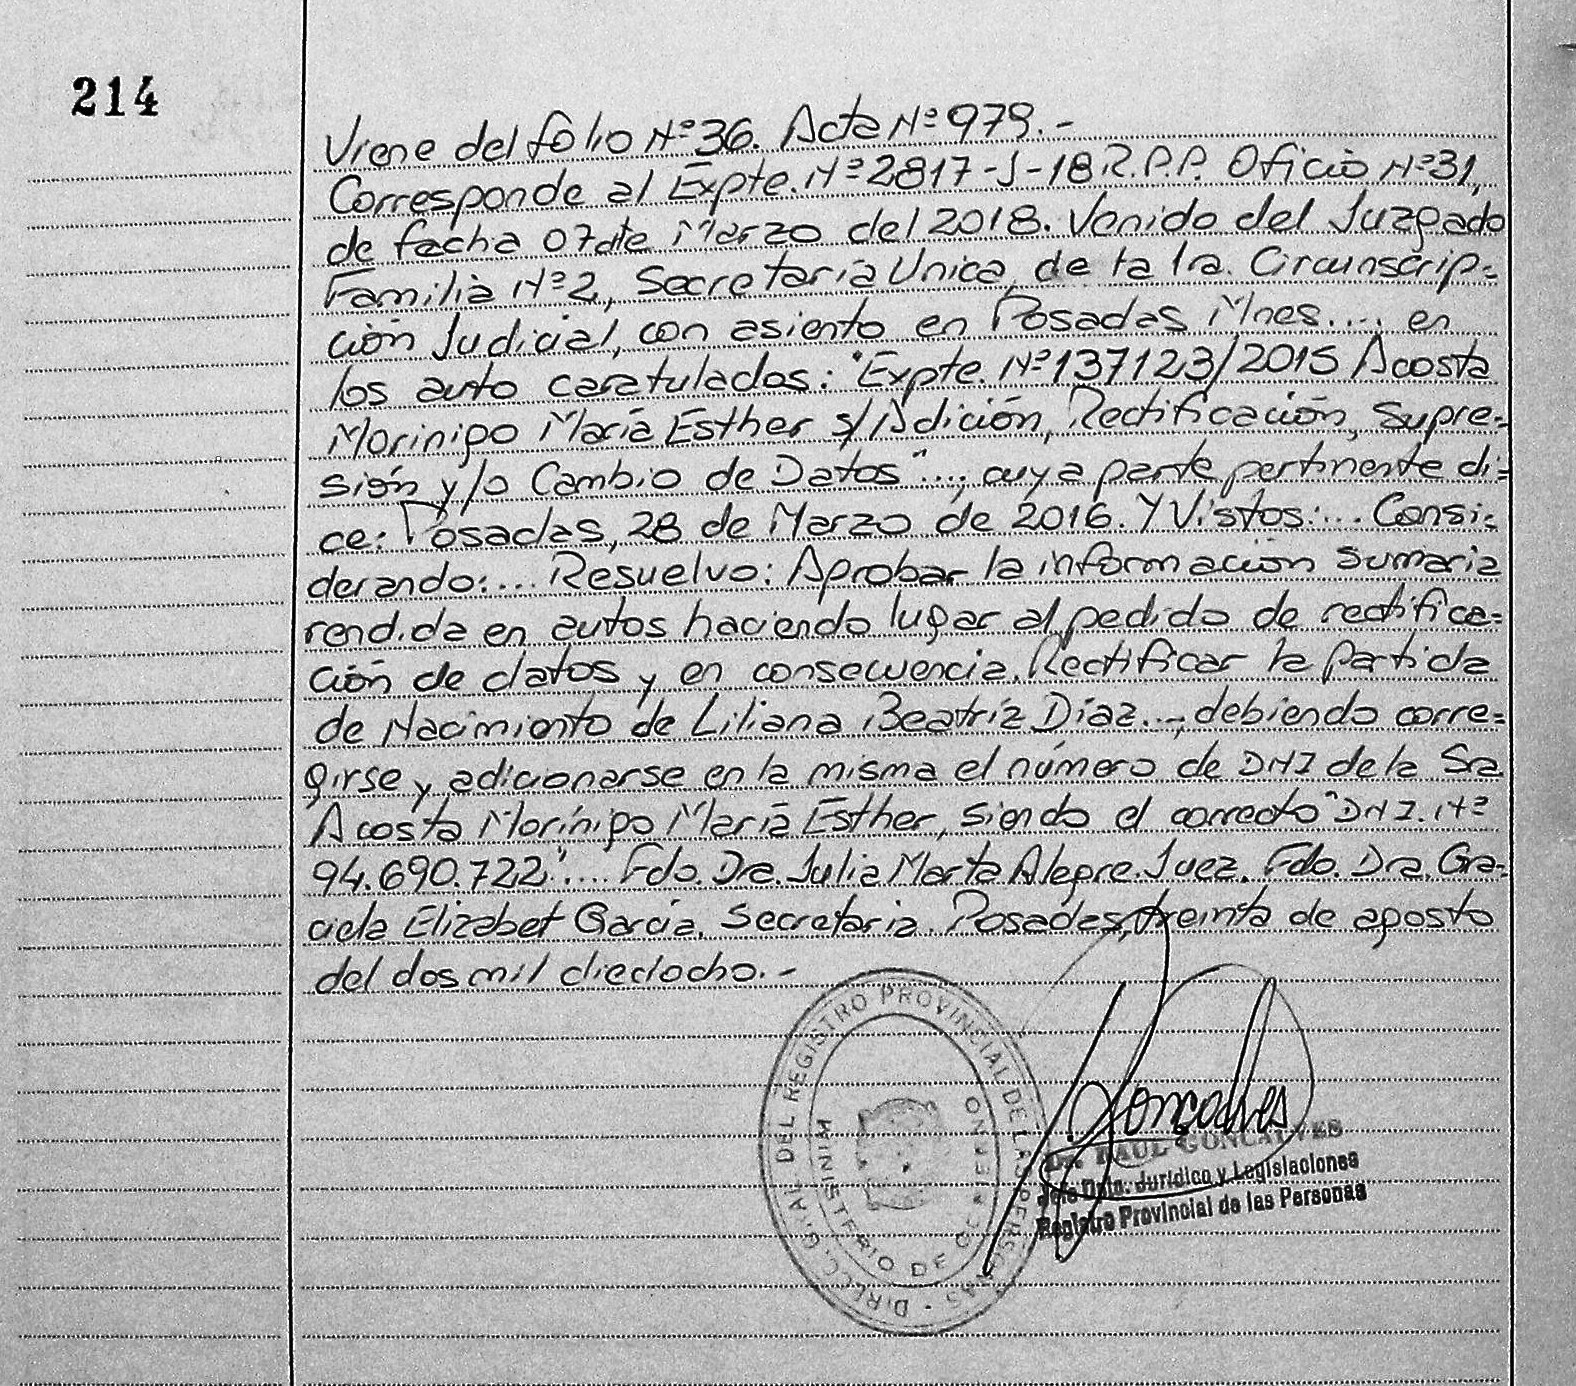 214
Viene del folio Nº 36. Acta Nº 979.-
Corresponde al Expte. Nº 2817-J-18 R.P.P. Oficio Nº 31,
de fecha 07 de Marzo del 2018. Venido del Juzgado
Familia Nº 2, Secretaría Unica, de la 1ra. Circunscrip=
ción Judicial, con asiento en Posadas Mnes.... en
los auto caratulados: "Expte. Nº 137123/2015 Acosta
Morinigo María Esther s/ Adición, Rectificación, Supre=
sión y/o Cambio de Datos"..., cuya parte pertinente di=
ce: Posadas, 28 de Marzo de 2016. Y Vistos:... Consi=
derando:... Resuelvo: Aprobar la información sumaria
rendida en autos haciendo lugar al pedido de rectifica=
ción de datos y en consecuencia. Rectificar la Partida
de Nacimiento de Liliana Beatríz Díaz..., debiendo corre=
girse y adicionarse en la misma el número de DNI de la Sra.
Acosta Morínigo María Esther, siendo el correcto "DNI. Nº
94.690.722".... Fdo. Dra. Julia Marta Alegre. Juez. Fdo. Dra. Gra=
ciela Elizabet García. Secretaria. Posadas, treinta de agosto
del dos mil dieciocho.-
DIRECC. GRAL. DEL REGISTRO PROVINCIAL DE LAS PERSONAS
MINISTERIO DE GOBIERNO
Goncalves
Dr. RAUL GONCALVES
Jefe Dpto. Jurídico y Legislaciones
Registro Provincial de las Personas